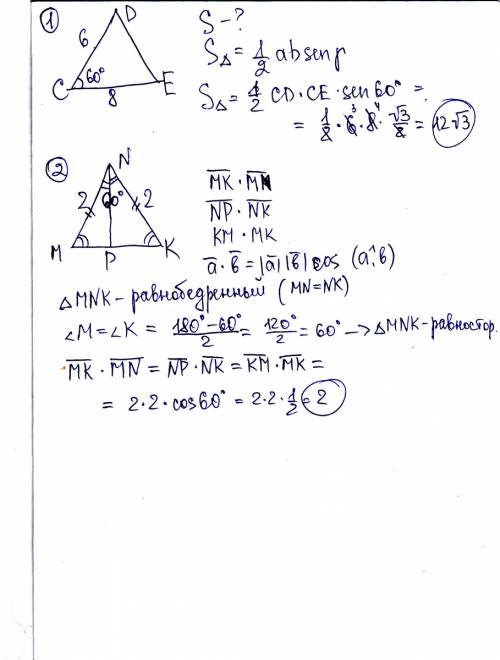 ① D 6 60° C 8 E
S - ?
S△ = 1/2 ab sen γ
S△ = 1/2 CD · CE · sen 60° =
= 1/2 · 6 · 8 · √3/2 = 12√3
3 4
② N 2 60° 2 M P K
MK · MN
NP · NK
KM · MK
a · b = |a| |b| cos (a^b)
△MNK - равнобедренный (MN = NK)
∠M = ∠K = 180° - 60° / 2 = 120° / 2 = 60° → △MNK - равностор.
MK · MN = NP · NK = KM · MK =
= 2 · 2 · cos 60° = 2 · 2 · 1/2 = 2